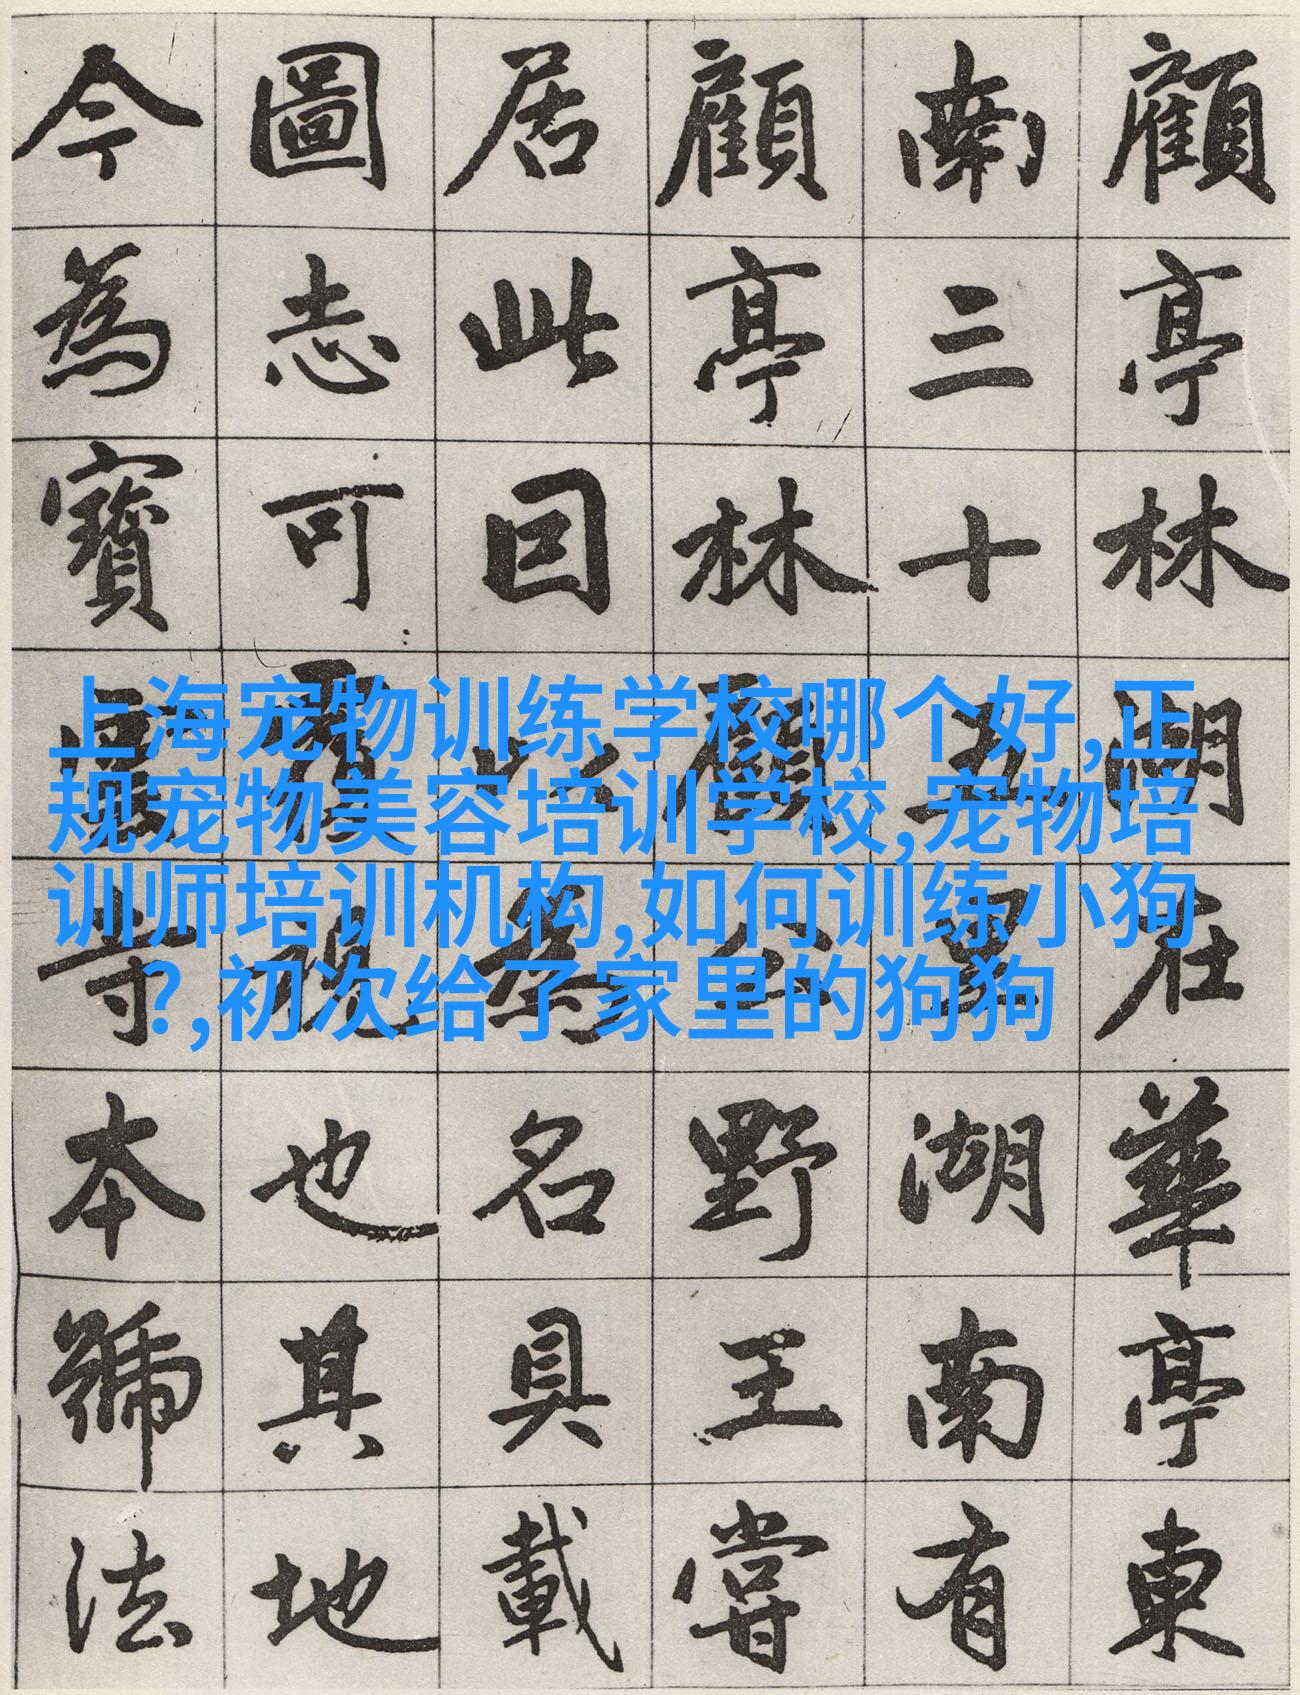 顧亭林湖在華亭東
南三十五里湖南有
顧亭林顧公野王嘗
居此因以為名具載
圖志可覆視也其地
今為寶雲寺本號法
上海宠物训练学校哪个好,正
规宠物美容培训学校,宠物培
训师培训机构,如何训练小狗
?,初次给了家里的狗狗